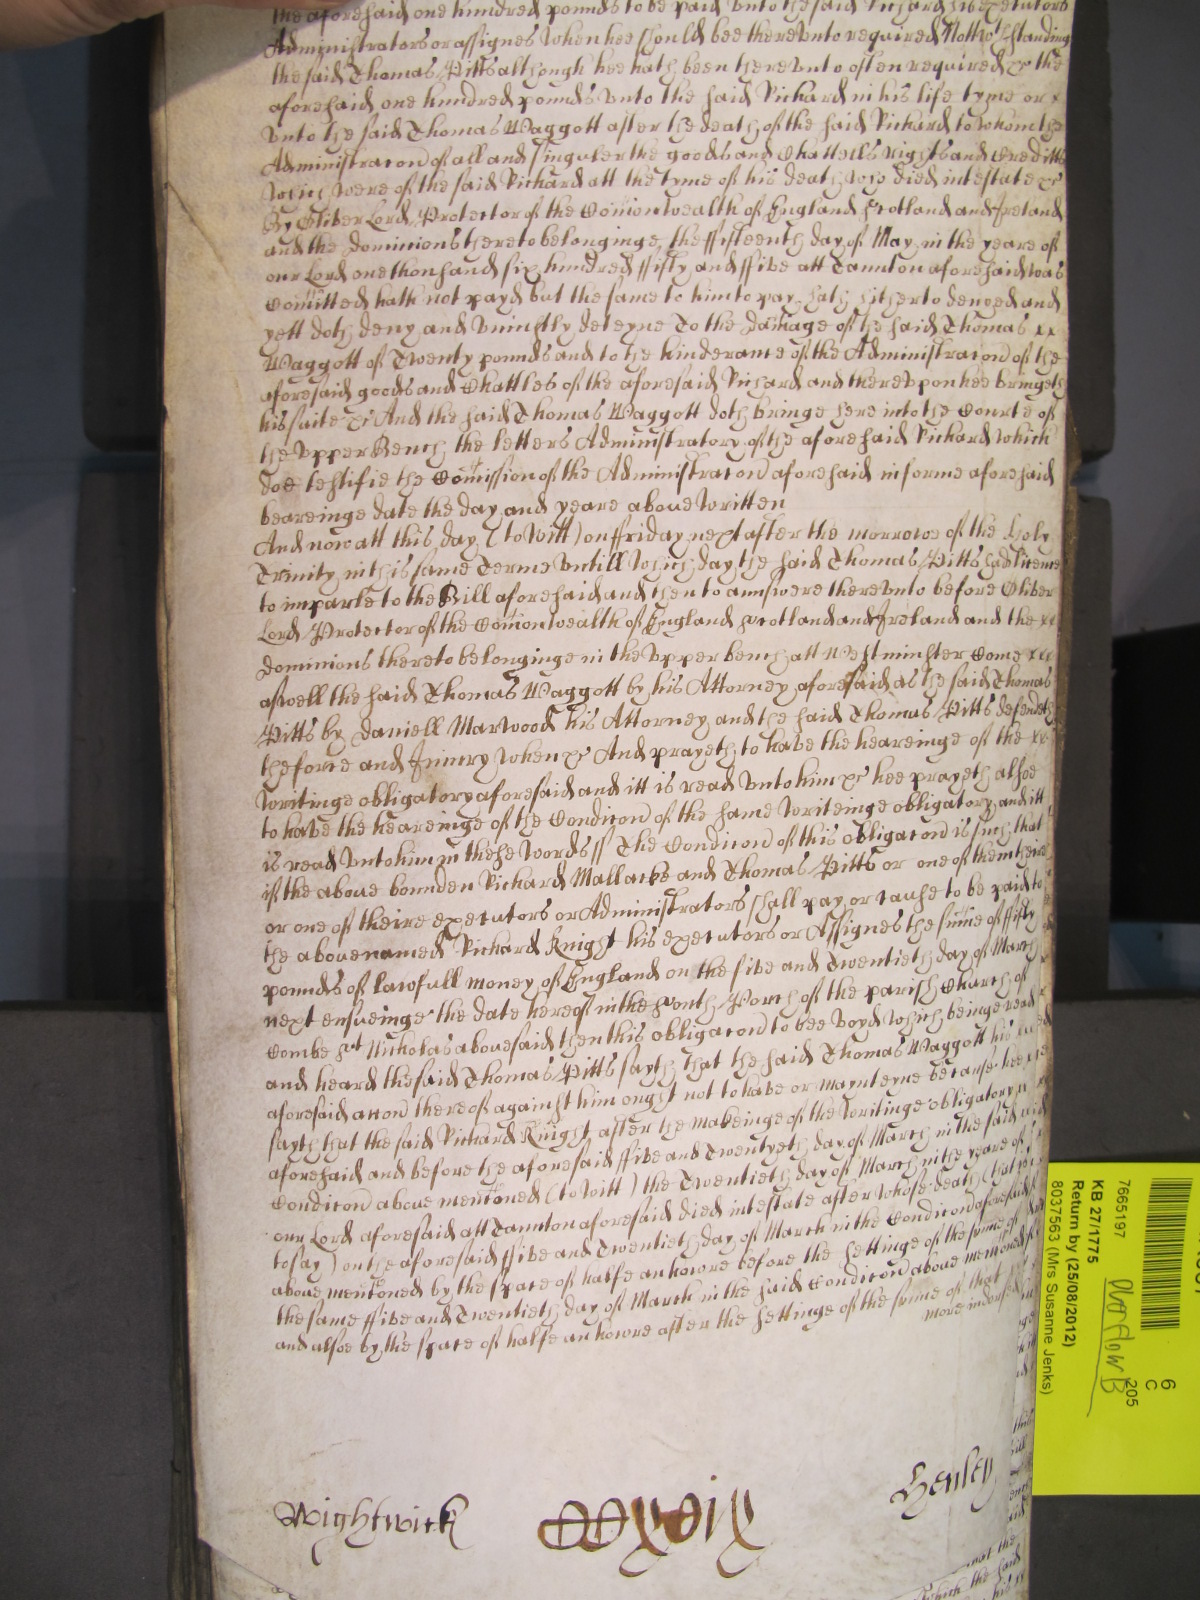 the aforesaid one hundred pounds to be paid unto the said Richard his executors
Administrators or assignes when hee should bee thereunto required Notwthstanding
the said Thomas Pitts although hee hath been thereunto often required &c the
aforesaid one hundred pounds unto the said Richard in his life tyme or x
unto the said Thomas Waggott after the death of the said Richard to whom the
Administracon of all and singuler the goods and Chattells rights and Creditts
which were of the said Richard att the tyme of his death who died intestate &c
By Oliver Lord Protector of the Comonwealth of England Scotland and Ireland
and the Dominions thereto belonginge, the ffifteenth day of May in the yeare of
our Lord one thousand six hundred ffifty and ffive att Taunton aforesaid was
Comitted hath not payd but the same to him to pay hath hitherto denyed and
yett doth deny and uniustly deteyne To the damage of the said Thomas xx
Waggott of Twenty pounds and to the hinderance of the Administracon of the
aforesaid goods and Chattles of the aforesaid Richard and thereupon hee bringeth
his suite &c And the said Thomas Waggott doth bringe here into the Courte of
the Upper Bench the letters Administratory of the aforesaid Richard which
doe testifie the Comission of the Administracon aforesaid in forme aforesaid
beareinge date the day and yeare above written
And now att this day (to witt) on ffriday next after the morrowe of the holy
Trinity in this same Terme untill which day the said Thomas Pitts had licence
to imparle to the Bill aforesaid and then to answere thereunto before Oliver
Lord Protector of the Comonwealth of England Scotland and Ireland and the xx
Dominions thereto belonginge in the upper bench att Westminster Come xxx
aswell the said Thomas Waggott by his Attorney aforesaid as the said Thomas
Pitts by Daniell Marwood his Attorney and the said Thomas Pitts defendeth
the force and Iniury when &c And prayeth to have the heareinge of the xx
writinge obligatory aforesaid and itt is read unto him &c hee prayeth alsoe
to have the heareinge of the Condicon of the same writeinge obligatory and itt
is read unto him in these words ss The Condicon of this obligacon is such that
if the above bounden Richard Mallacke and Thomas Pitts or one of them theire
or one of theire executors or Administrators shall pay or cause to be paid to
the abovenamed Richard Knight his executors or Assignes the sume of ffifty
pounds of lawfull money of England on the five and Twentieth day of March
next ensueinge the date hereof in the South Porch of the parish Church of
Combe St Nicholas abovesaid then this obligacon to bee voyd which beinge read
and heard the said Thomas Pitts sayth that the said Thomas Waggott his
aforesaid accon thereof against him ought not to have or maynteyne because hee
sayth that the said Richard Knight after the makeinge of the writinge obligatory
aforesaid and before the aforesaid ffive and Twentyeth day of March in the said
Condicon above mentoned (to witt) the Twentieth day of March in the yeare of
our Lord aforesaid att Taunton aforesaid died intestate after whose death (that is
to say) on the aforesaid ffive and Twentieth day of March in the Condicon aforesaid
above mentoned by the space of halfe an howre before the settinge of the sunne of
the same ffive and Twentieth day of March in the said Condicon above mentoned
and alsoe by the space of halfe an howre after the settinge of the sunne of that
more indorsed
Wightwick
Henley
7665197
KB 27/1775
Return by (25/08/2012)
8037563 (Mrs Susanne Jenks)
Overflow B
6
C
205